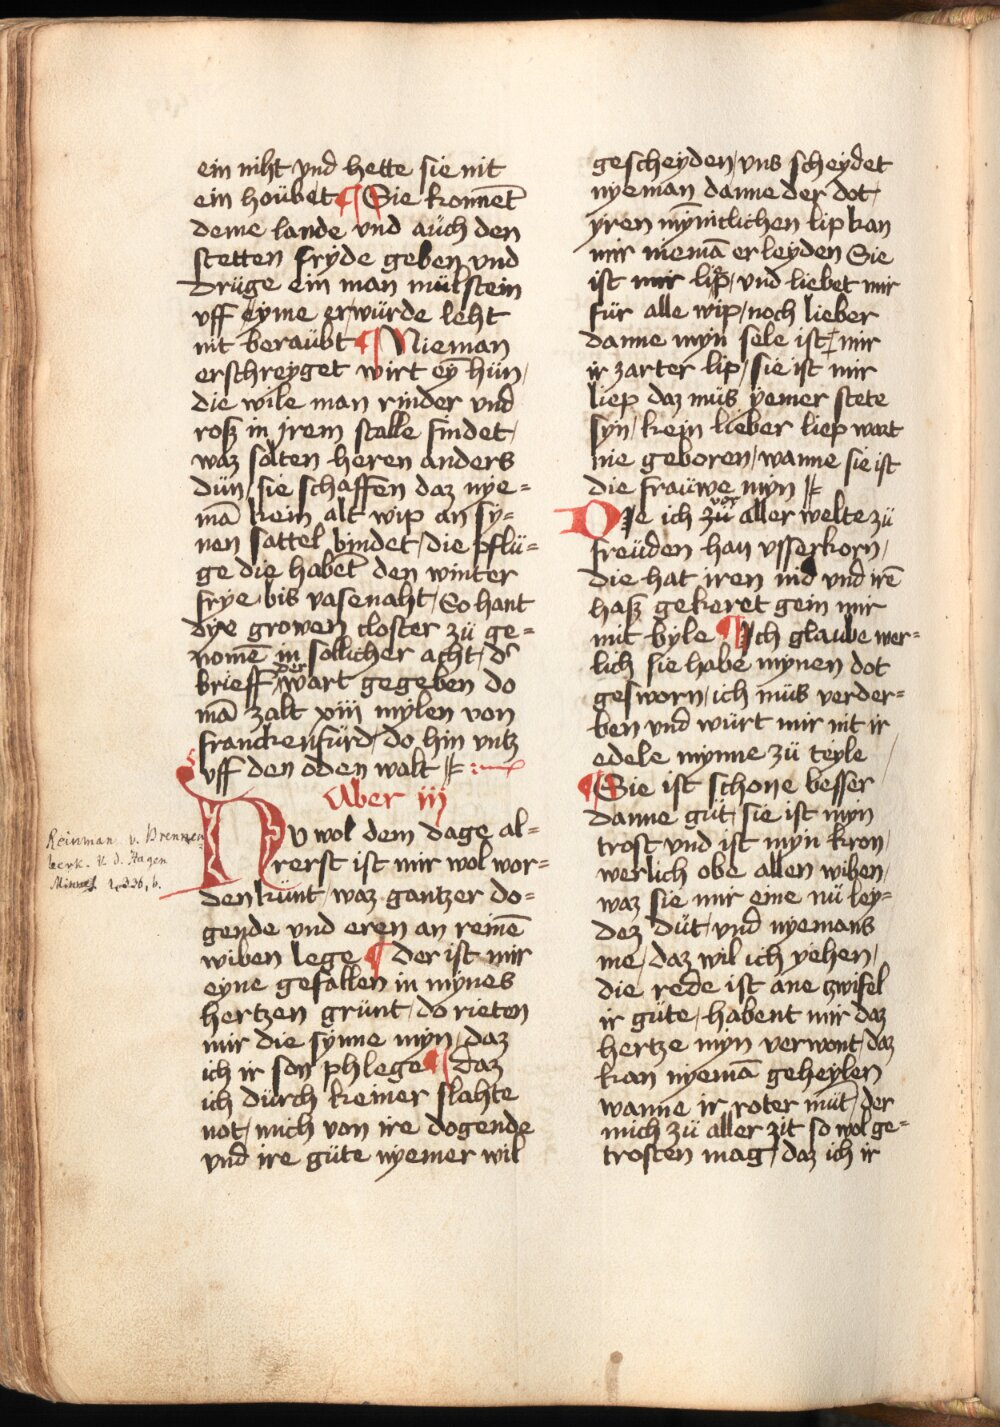 ein niht vnd hette sie nit
ein houbet ¶ Sie konnēt
deme lande vnd auch den
stetten fryde geben vnd
drüge ein man mülstein
vff eyme er würde leht
nit beraübt ¶ Nieman
erschreyget wirt eȳ hün /
die wile man rinder vnd
rosz in jrem stalle findet /
waz solten heren anders
dün / sie schaffen daz nye=
mā kein alt wip an sy=
nen sattel bindet / die pflü=
ge die habēt den winter
frye bis vasenaht / So hant
dye growen closter zü ge=
nomē in sollicher acht / d'
brieff der wart gegeben do
mā zalt xiij mylen von
franckenfürd / do hin vntz
vff den oden walt
Aber iij
Nu wol dem dage al=
rerst ist mir wol wor=
den künt / waz gantzer do=
gende vnd eren an reinē
wiben lege ¶ der ist mir
eyne gefallen in mynes
hertzen grünt / do rieten
mir die synne myn / daz
ich ir son phlege ¶ daz
ich dürch keiner slahte
not / mich von ire dogende
vnd ire güte nyemer wil
Reinman v. Brennen
berk. v. d. Hagen
Minnes 1, 336, b.
gescheyden / vns scheydet
nyeman danne der dot /
yren mȳnitlichen lip kan
mir niemā erleyden Sie
ist mir lip / vnd liebet mir
für alle wip / noch lieber
danne myn sele ist / mir
ir zarter lip / sie ist mir
liep daz müs yemer stete
syn / kein lieber liep wart
nie geboren / wanne sie ist
die fraüwe myn
Die ich zü vor aller welte zü
freüden han vsserkorn /
die hat iren nid vnd irē
hasz gekeret gein mir
mit byle ¶ Ich glaube wer=
lich sie habe mynen dot
gesworn / ich müs verder=
ben vnd würt mir nit ir
edele mynne zü teyle
¶ Sie ist schone besser
danne güt / sie ist myn
trost vnd ist myn kron /
werlich obe allen wiben /
waz sie mir eine nü ley=
dez düt / vnd nyemans
me / daz wil ich yehen /
die rede ist ane zwifel
ir güte / habent mir daz
hertze myn verwont / daz
kan nyemā geheylen
wanne ir roter müt / der
mich zü aller zit so wol ge=
trosten mag / daz ich ir